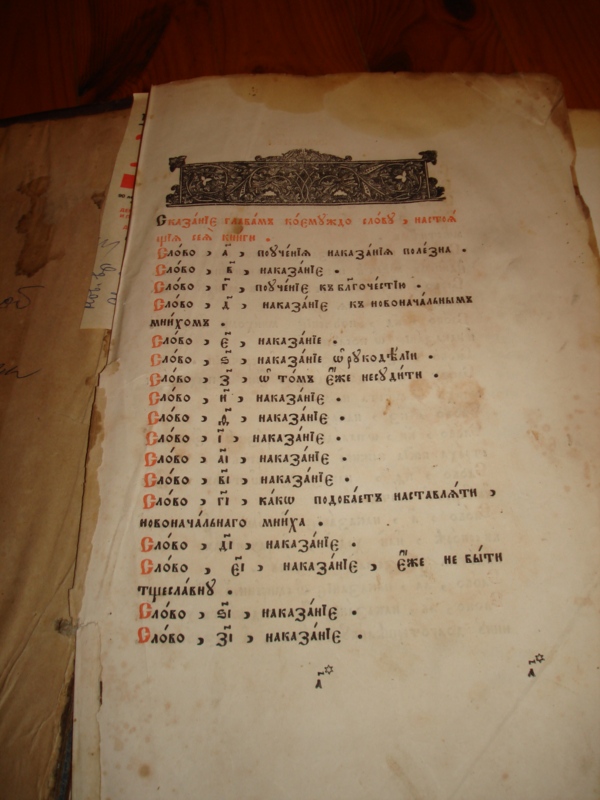 Сказа́нїе глава́мъ кое́мꙋждо сло́вꙋ , настоѧ́
щїѧ сеѧ̀ книги .
Сло́во , а҃ , поꙋче́нїѧ наказа́нїѧ поле́зна .
Сло́во , в҃ , наказа́нїе .
Сло́во , г҃ , поꙋче́нїе къ бл҃гоче́стїю .
Сло́во , д҃ , наказа́нїе къ новонача́льнымъ
мни́хомъ .
Сло́во , є҃ , наказа́нїе .
Сло́во , ѕ҃ , наказа́нїе ѡ҆ рꙋкодѣ́лїи .
Сло́во , з҃ , ѡ҆ то́мъ є҆́же несꙋди́ти .
Сло́во , и҃ , наказа́нїе .
Сло́во , ѳ҃ , наказа́нїе .
Сло́во , і҃ , наказа́нїе .
Сло́во , а҃і , наказа́нїе .
Сло́во , в҃і , наказа́нїе .
Сло́во , г҃і , ка́кѡ подоба́етъ наставлѧ́ти ,
новонача́льнаго мни́ха .
Сло́во , д҃і , наказа́нїе .
Сло́во , є҃і , наказа́нїе , є҆́же не бы́ти
тщесла́внꙋ .
Сло́во , ѕ҃і , наказа́нїе .
Сло́во , з҃і , наказа́нїе .
а҃ а҃